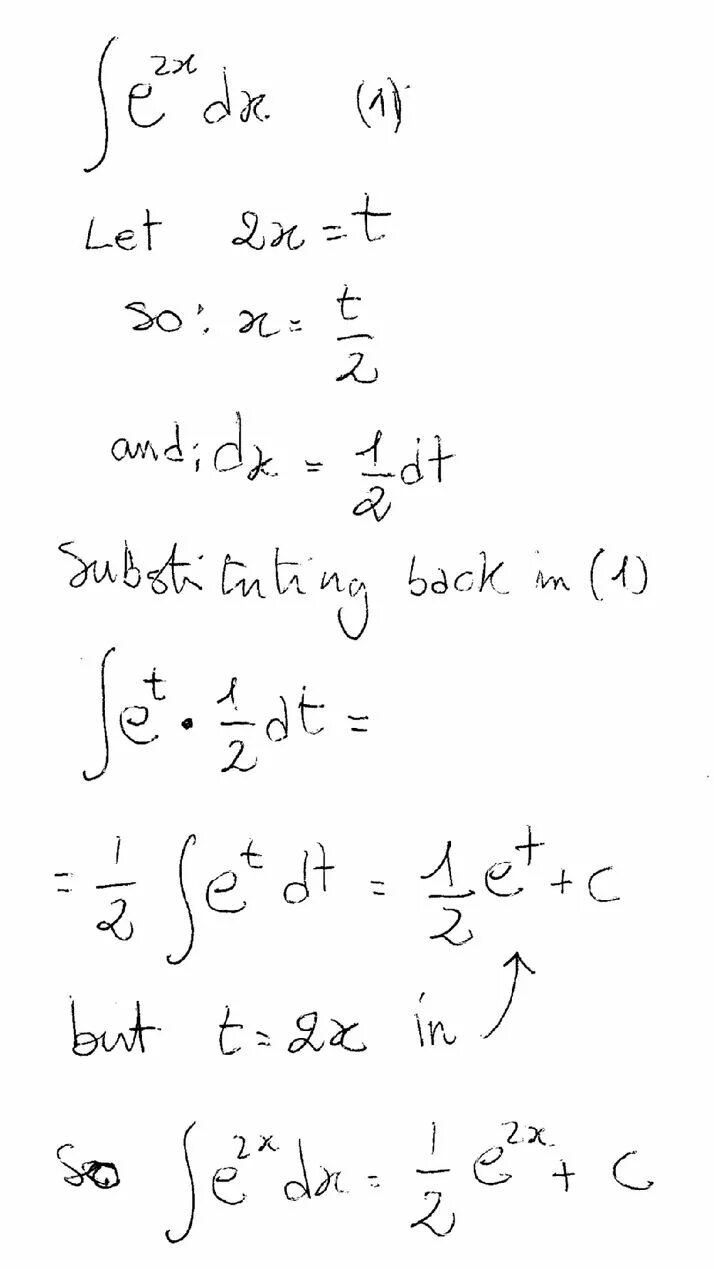 ∫e^{2x} dx (1)
Let 2x = t
so: x = t/2
and; dx = 1/2 dt
Substituting back in (1)
∫e^t · 1/2 dt =
= 1/2 ∫e^t dt = 1/2 e^t + c
but t = 2x in ↗
So ∫e^{2x} dx = 1/2 e^{2x} + c